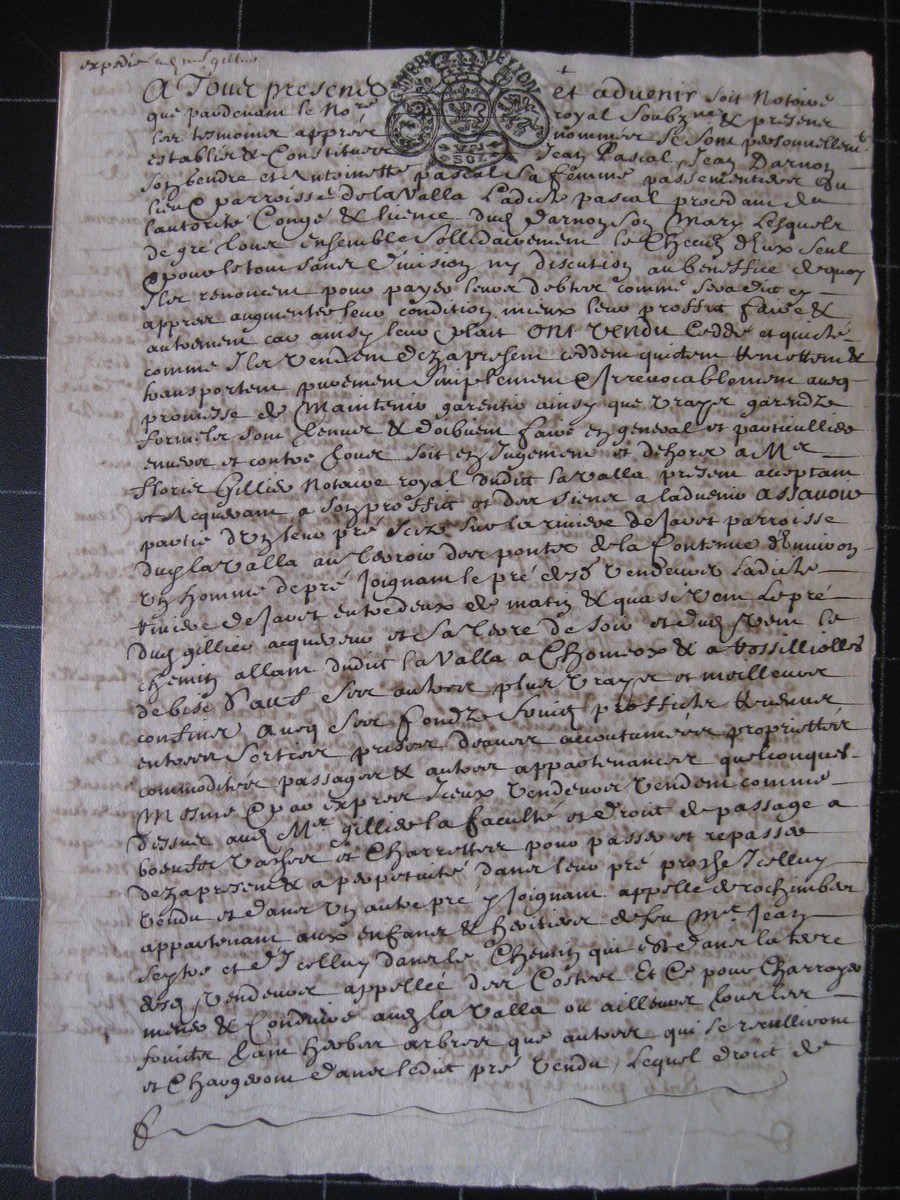 expedié
A Tour presents et advenir soit Notoire
que pardevant le No.re royal soubz.ne & presens
les tesmoins apprès nommes se sont personnellem.t
establis & Constitues Jean Pascal, Jean Darnon
son gendre et Antoinette pascal sa femme passementiers du
lieu & parroisse de la Valla Ladicte pascal procedant de
lautorité Congé & licence dud Darnon son Mary Lesquels
de gré tous ensemble sollidairement & Checun deux seul
& pour le tout sans division ny discution au beneffice de quoy
Ils renoncent pour payer leurs debtes comme sera dit cy
appres augmenter leur condition mieux leur proffit faire &
autrement car ainsy leur plait ONT VENDU Ceddé et quicté
comme Ils Vendent dezapresent ceddent quictent Remettent &
transportent purement simplement & Irrevocablement avec
promesse de Maintenir garentir ainsy que Vrays garendz
formels sont tenus & doibvent faire en general et particullier
envers et contre tous soit en Jugement et dehors a M.er
floris Gillier Notaire royal dudit la Valla present acceptant
et Acquerant a son proffit et des siens a ladvenir assavoir
partie dun leur pré scize sur la riviere de Javot parroisse
dud la Valla au des ponts de la Contenue d'Environ
un homme de pré Joignant le pré desd Vendeurs Ladicte
riviere de Javot entredeux de matin & quasi Vent Le pré
dud gillier acquereur et sa terre de soir et dud Vent le
chemin allant dudit la Valla a Chomeox & a Rossilliolles
de bise sauf ses autres plus Vrays et meilleurs
confins Avec ses fondz fruits proffits Revenus
entrees sorties prises deaues accoutumées proprietés
commodites passages & autres appartenances quelconques
Mesme & par expres Iceux Vendeurs Vendent comme
dessus aud M.er gillier la faculté et droit de passage a
boeufs Vaches et Charrettes pour passer et repasser
dezapresent & a perpetuité dans leur pré proche Icelluy
Vendu et dans un autre pré y Joignant appellé de rochimbes
appartenant aux enfans & heritiers de feu M.re Jean
Seytre et d'Icelluy dans le Chemin qui est dans la terre
desd Vendeurs appellée des Costes Et Ce pour Charroyer
mener & Conduire aud la Valla ou ailleurs tous les
fruits tant herbes arbres que autres qui se recullivont
et Chargeront dans ledit pré Vendu, Lequel droit de